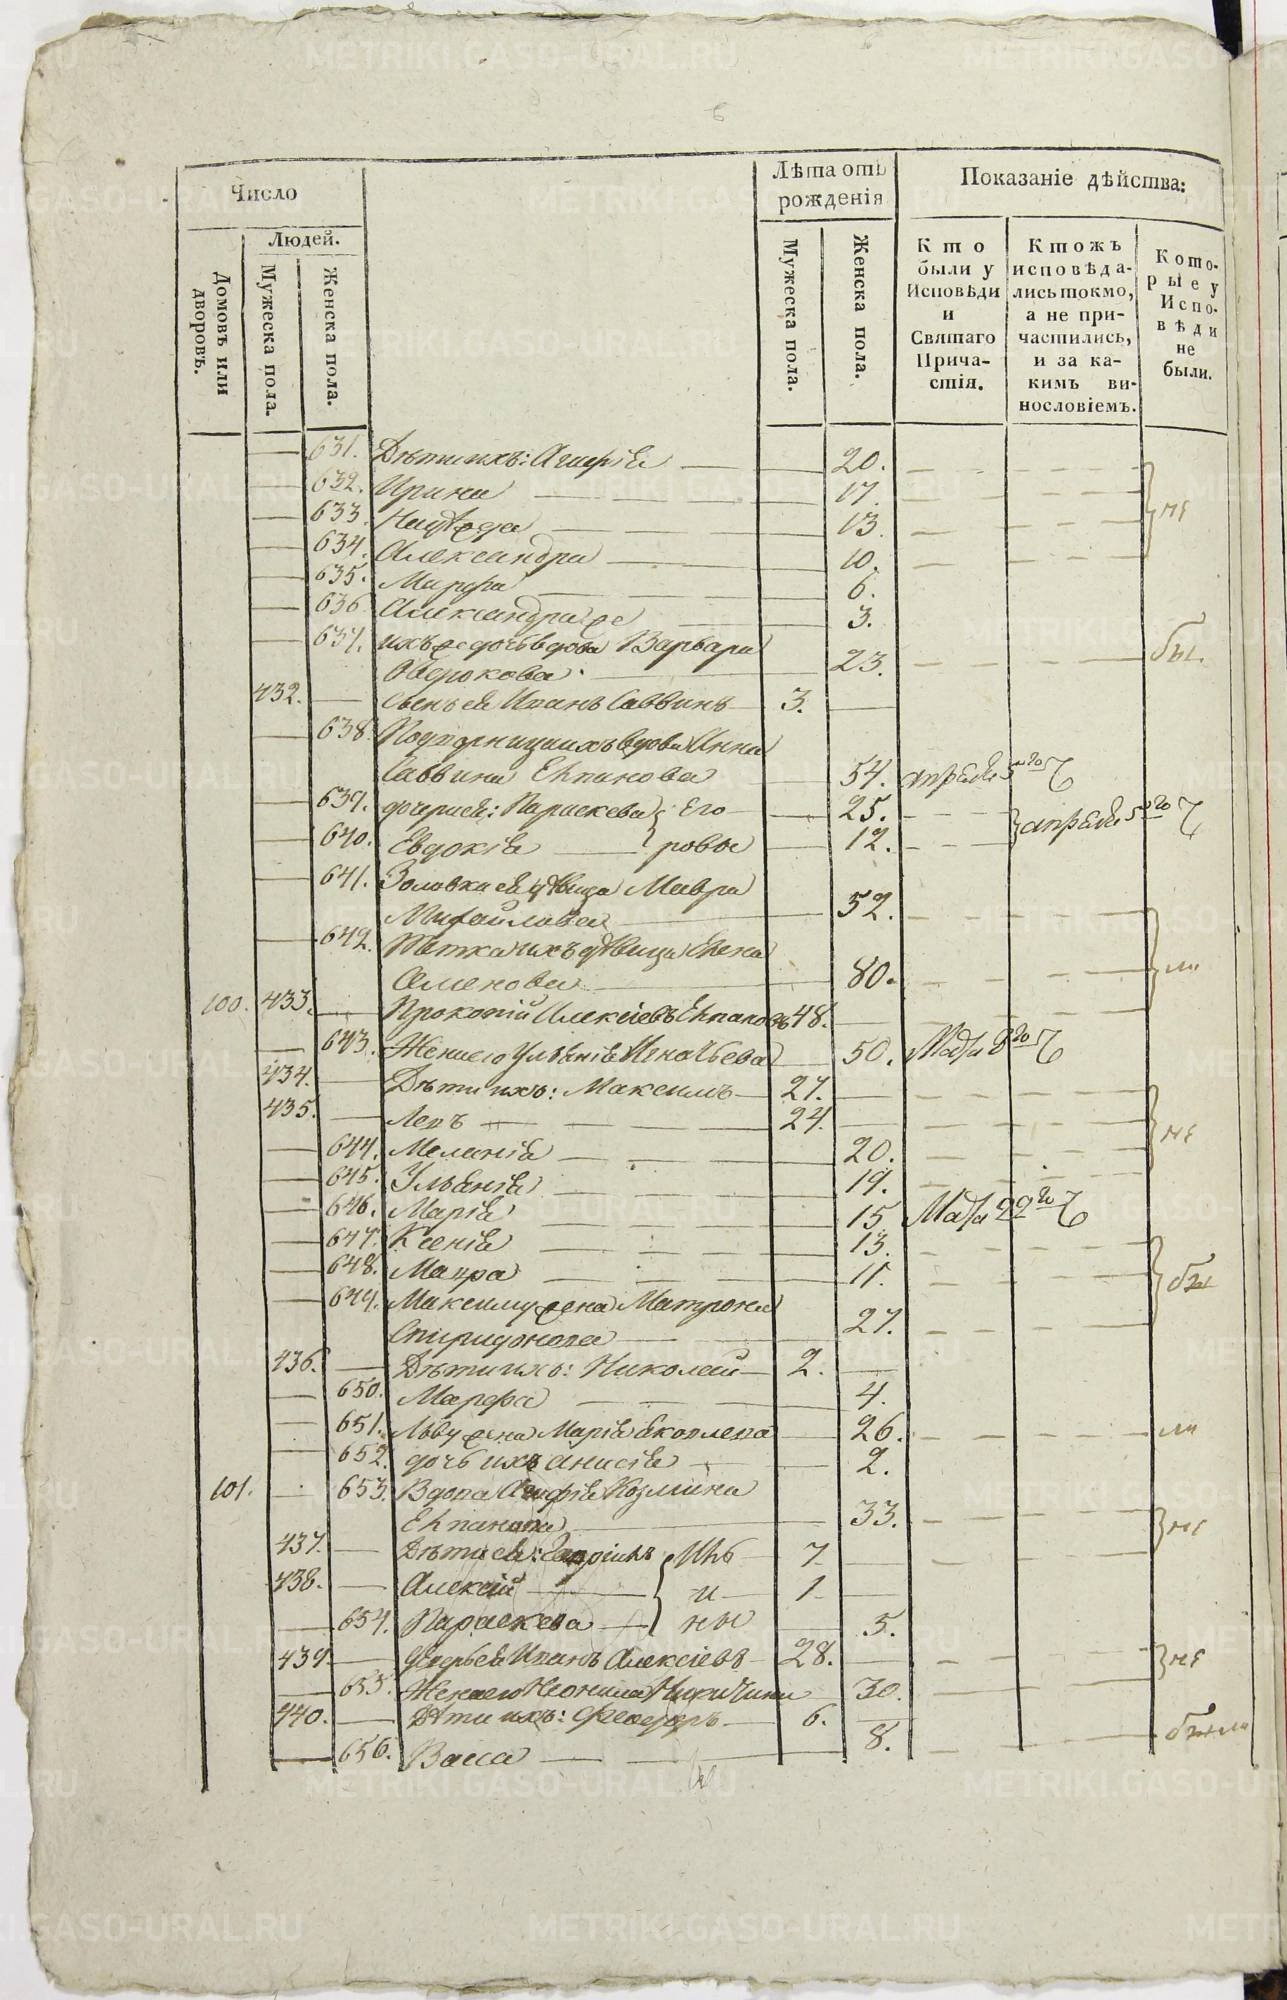 Число
Лѣта отъ рожденія
Показаніе дѣйства:
Домовъ или дворовъ.
Людей.
Мужеска пола.
Женска пола.
Мужеска пола.
Женска пола.
Кто были у Исповѣди и Святаго Причастія.
Ктожъ исповѣдались токмо, а не причастились, и за какимъ винословіемъ.
Которые у Исповѣди не были.
631. Дѣти ихъ: Агафія 20.
632. Ирина 17.
633. Надѣжда 13. не
634. Александра 10.
635. Марфа 6.
636. Александра же 3.
637. ихъ же дочь вдова Варвара
23. бы.
432. Сынъ ея Иванъ Саввинъ 3.
638. вдова Анна
Саввина Епанова 54. апрѣля 5го
639. дочери ея: Параскева Его 25. апрѣля 5го
640. Евдокія ровы 12.
641. Золовка ея дѣвица Мавра
Михайлова 52.
642. Тетка ихъ дѣвица Елена
80. ли
100. 433. Прокопій Алексіевъ Епановъ 48.
643. Жена его Ульянія Игнатьева 50. Мая 8го
434. Дѣти ихъ: Максимъ 27.
435. Левъ 24.
не
644. Меланія 20.
645. Ульянія 19.
646. Марія 15. Мая 22го
647. Ксенія 13.
648. Мавра 11. бы
649. Максиму жена Матрона
Спиридонова 27.
436. Дѣти ихъ: Николай 2.
650. Марфа 4.
651. Льву жена Марія Яковлева 26. ли
652. дочь ихъ Анисія 2.
101. 653. Вдова Агафія Козмина
Епанова 33. не
437. Дѣти ея: Ив 7.
438. Алексій и 1.
654. Параскева ны 5.
439. Деверь ея Иванъ Алексіевъ 28. не
655. Жена его Неонила Никитина 30.
440. Дѣти ихъ: Феодоръ 6.
656. Васса 8. были
METRIKI.GASO-URAL.RU